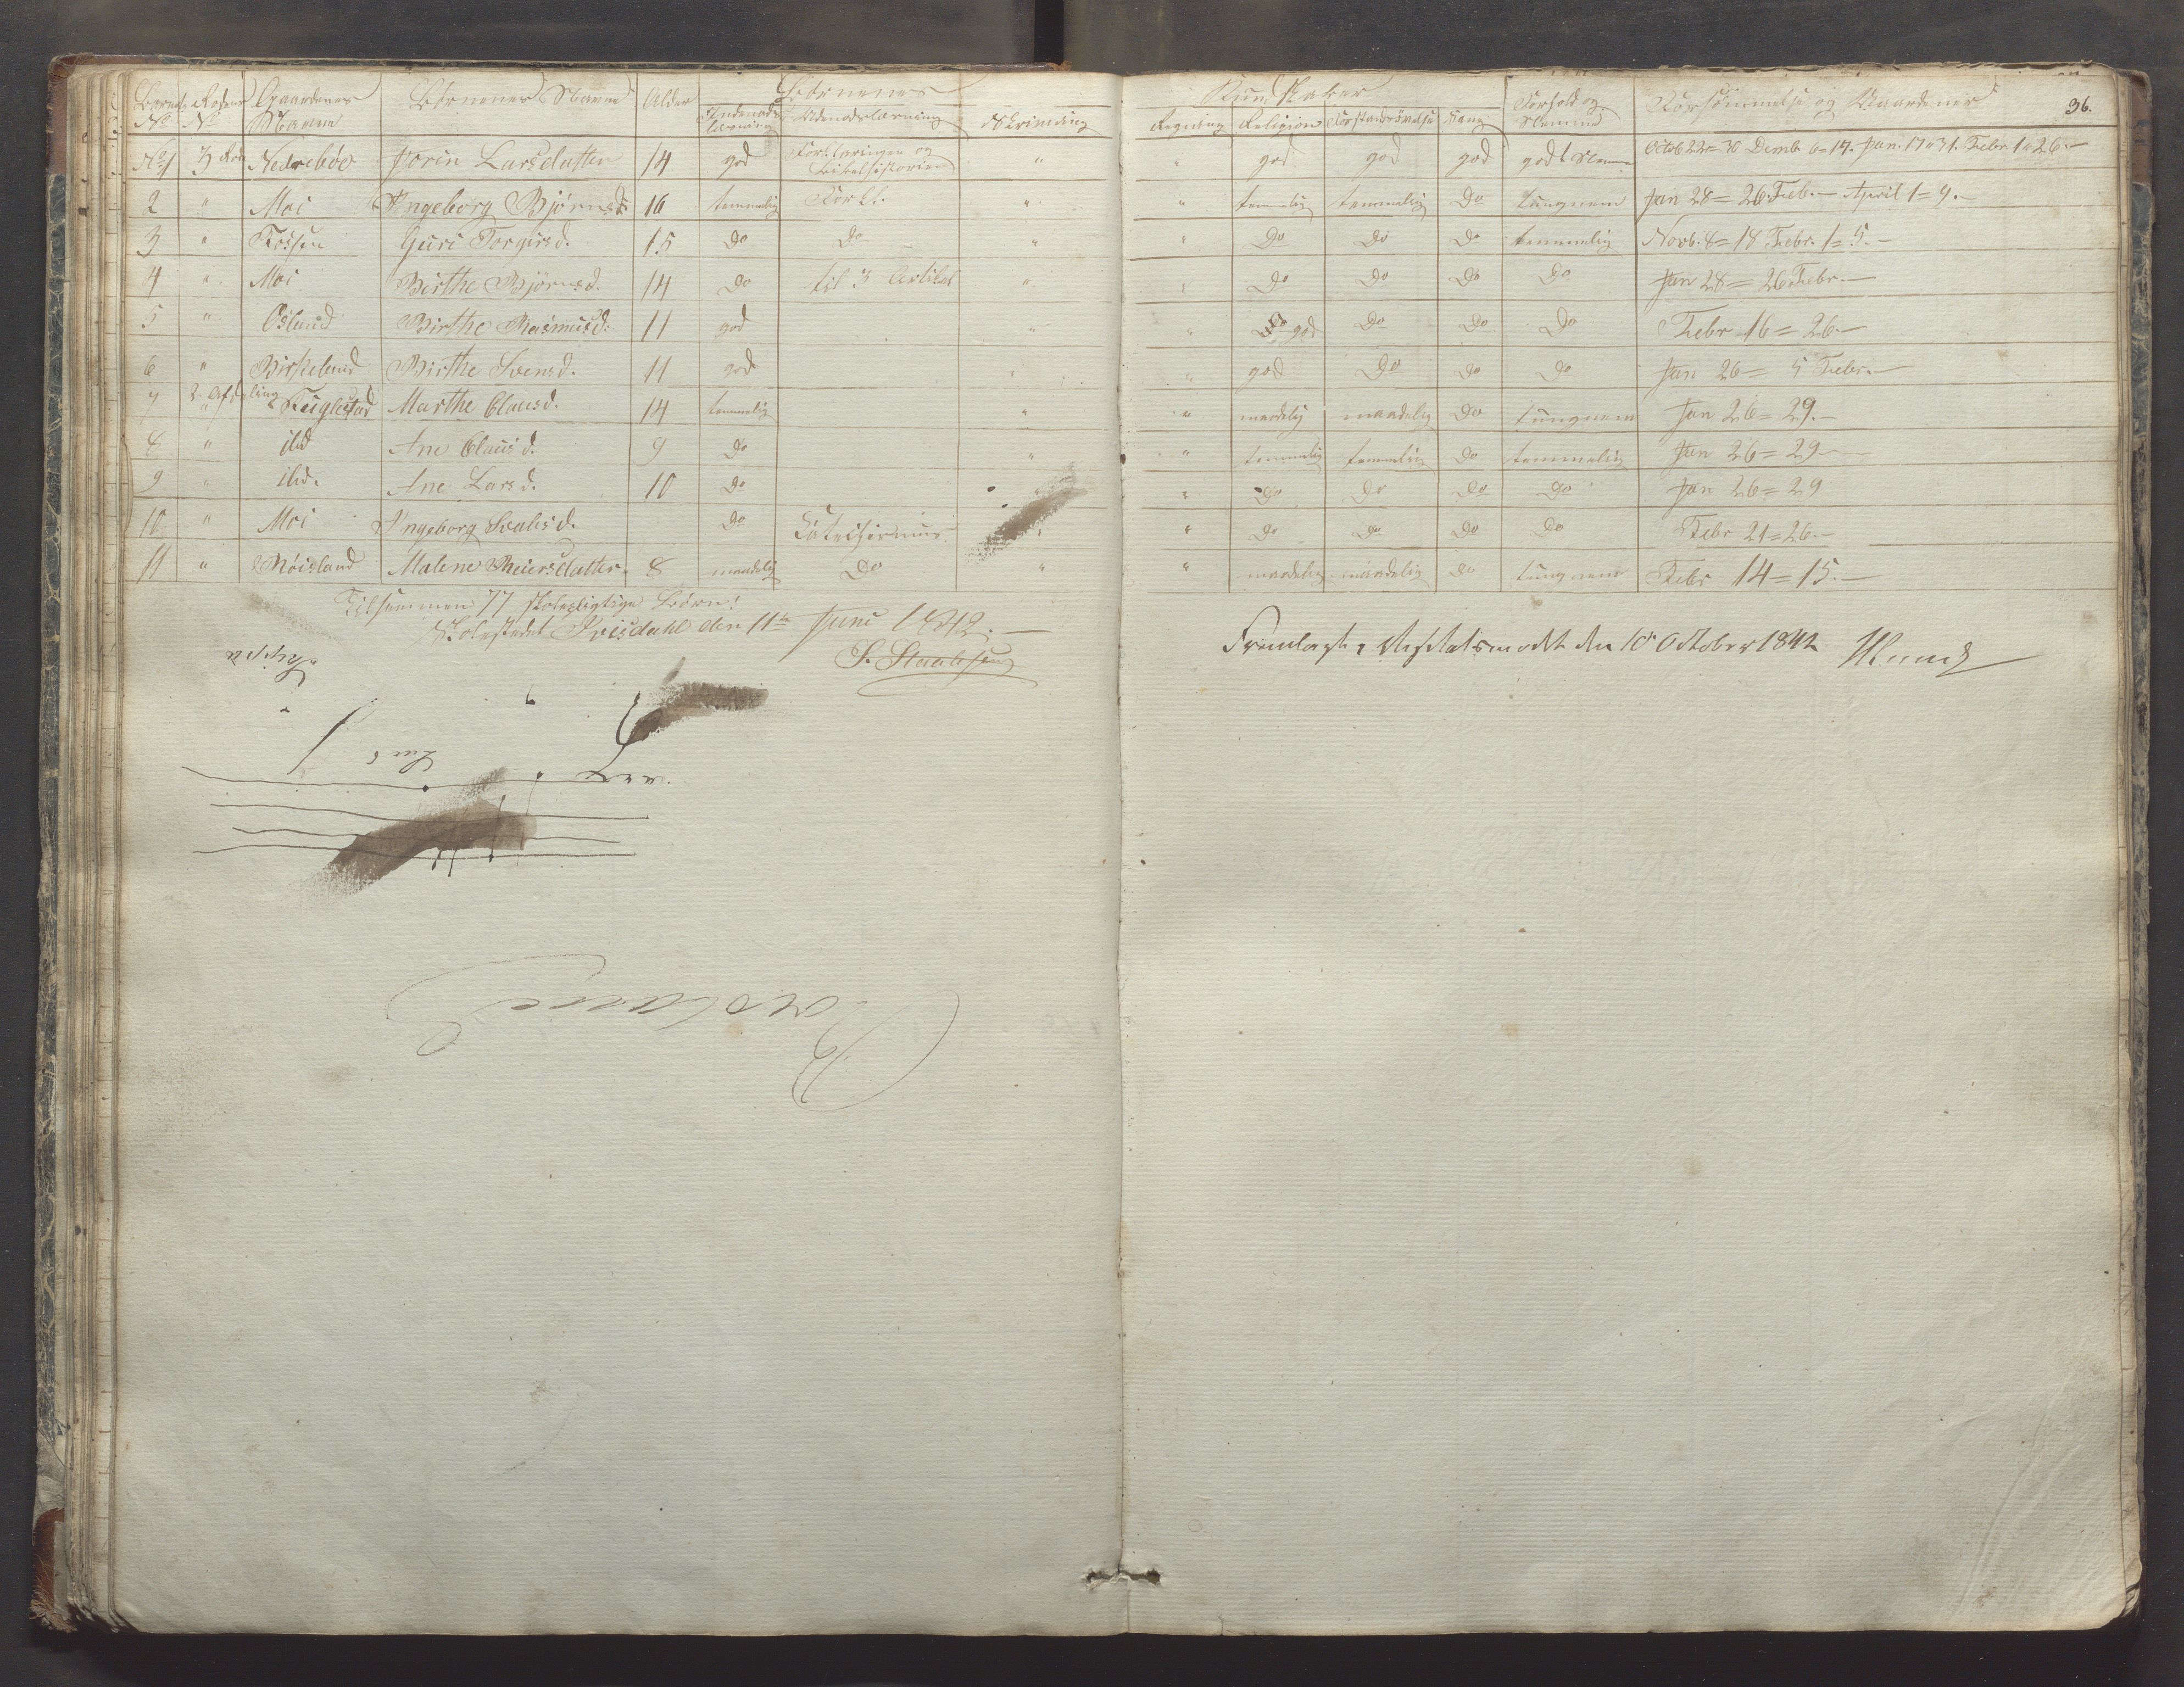 Børnenes Kundskaber
Børnes No Rodens No Gaardenes Navne Børnenes Navne Alder Indenads Læsning Udenadslæsning Skrivning Regning Religion Sang Forhold og Nemme Forsømmelse og 36.
No 1 3 Rode Nedrebøe Jorin Larsdatter 14 god Forklaringen og Bibelhistorien " " god god god godt Nemme Octob 22=30 Decemb 6=17. Jan. 17=31. Febr 1=26.—
2 " Moi Ingeborg Bjørnsd. 16 temmelig Forkl. " " temmelig temmelig Do tungnem Jan 28=26 Feb.— April 1=9.—
3 " Fossen Guri Torgersd. 15 Do Do " " Do Do Do temmelig Novb. 8=18 Febr. 1=5.—
4 " Moi Birthe Bjørnsd. 14 Do til 3 Artikel " " Do Do Do Do Jan 28=26 Febr.—
5 " Oslund Birthe Rasmusd. 11 god " " god Do Do Do Febr 16=26.—
6 " Birkelund Birthe Svensd. 11 god " " god Do Do Do Jan 26=5 Febr.—
7 2. Afdeling " Fuglestad Marthe Clausd. 14 temmelig " " maadelig maadelig Do tungnem Jan 26=29.—
8 " ibd Ane Clausd. 9 Do " " temmelig temmelig Do temmelig Jan 26=29—
9 " ibd. Ane Larsd. 10 Do " " Do Do Do Do Jan 26=29
10 " Moi Ingeborg d. Do Catechismus " " Do Do Do Do Febr 21=26.—
11 " Røisland Malene Reiersdatter. 8 maadelig Do " " maadelig maadelig Do tungnem Febr 14=15.—
Tilsammen 77 skolepligtige Børn!
Skolestedet den 11te Juni 1842.—
S. Staalesen
Fremlagt i Visitatsmødet den 10 October 1842 HLund
Lars